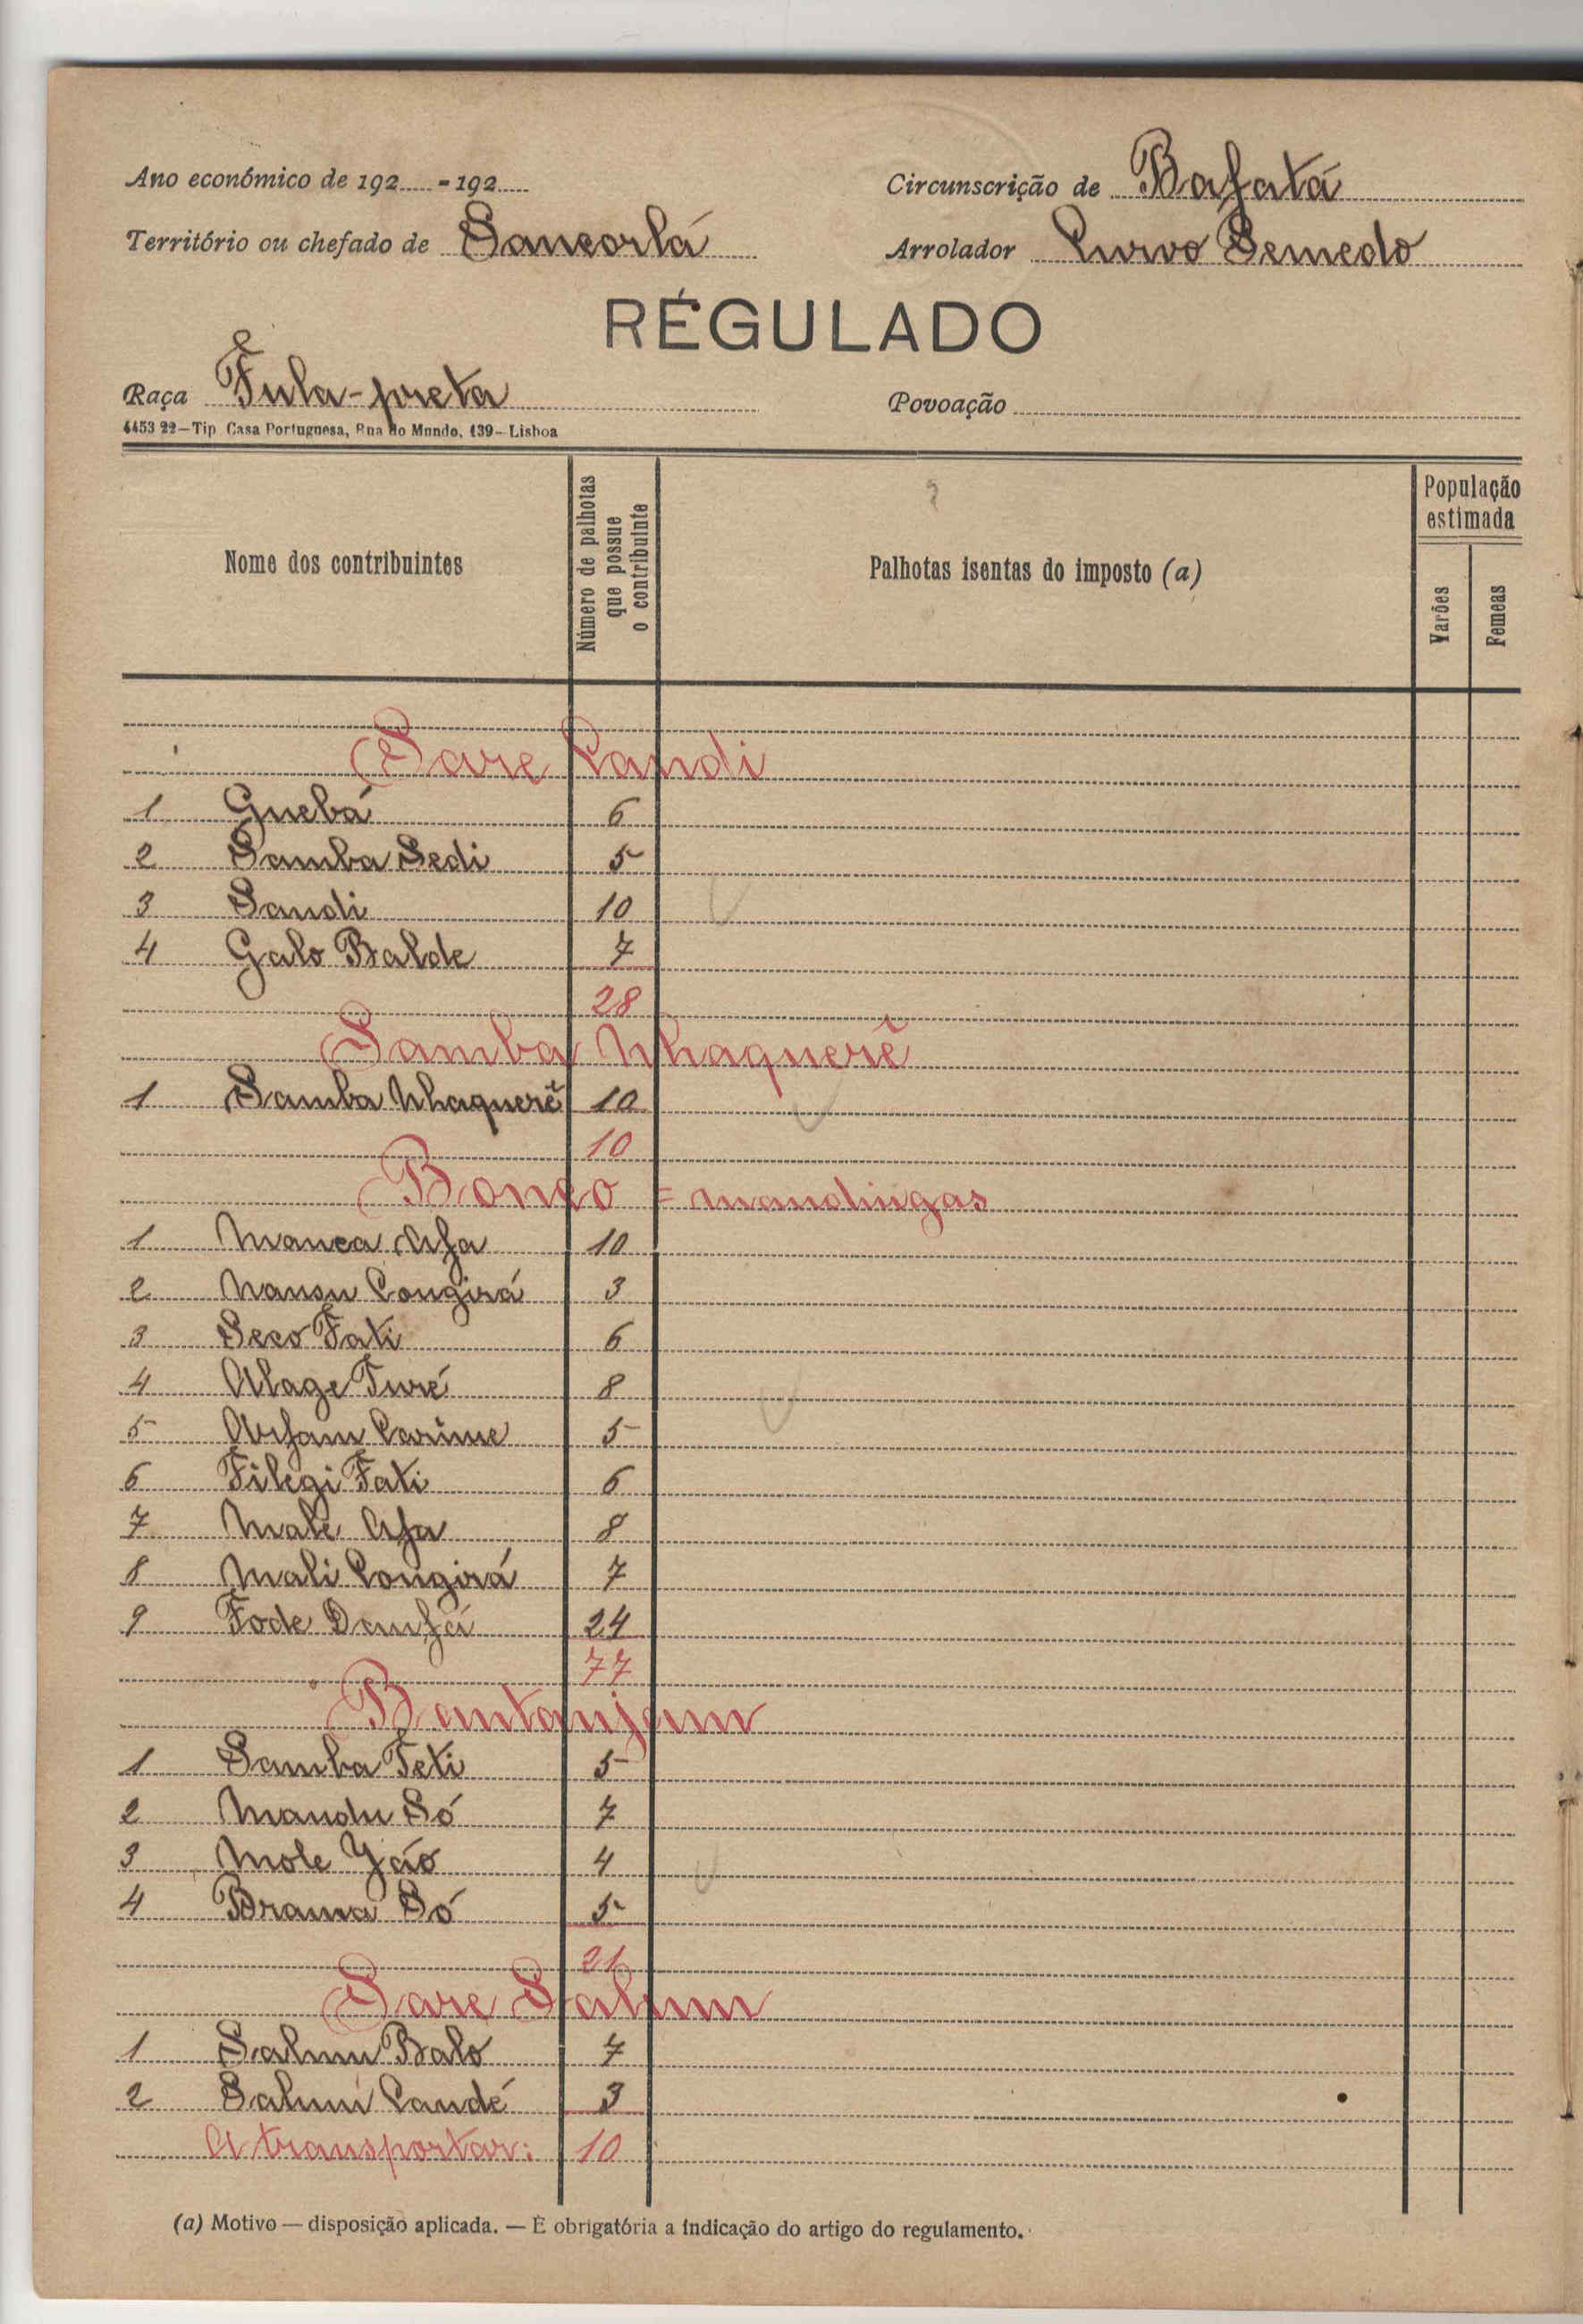 Ano económico de 192 - 192
Circunscrição de Bafatá
Território ou chefado de Sancorlá
Arrolador Curvo Semedo
RÉGULADO
Raça Fula-preta
Povoação
4453 22—Tip. Casa Portuguesa, Rua do Mundo, 139—Lisboa
Nome dos contribuintes
Número de palhotas que possue o contribuinte
Palhotas isentas do imposto (a)
População estimada
Varões
Femeas
Sare Candi
1 Guebá 6
2 Samba Sedi 5
3 Sandi 10
4 Galo Balde 7
28
Samba Nhaquerê
1 Samba Nhaquerê 10
10
Bonco = mandingas
1 Manca Afa 10
2 Nansu Congirá 3
3 Seco Fati 6
4 Alage Turé 8
5 Arfam Carime 5
6 Filegi Fati 6
7 Male Afa 8
8 Mali Congirá 7
9 Fode Danfá 24
77
Bantanjam
1 Samba Teti 5
2 Mandu Só 7
3 Mole 4
4 Brama Só 5
21
Sare Salum
1 Salum Balo 7
2 Salum Candé 3
A transportar: 10
(a) Motivo — disposição aplicada. — É obrigatória a indicação do artigo do regulamento.